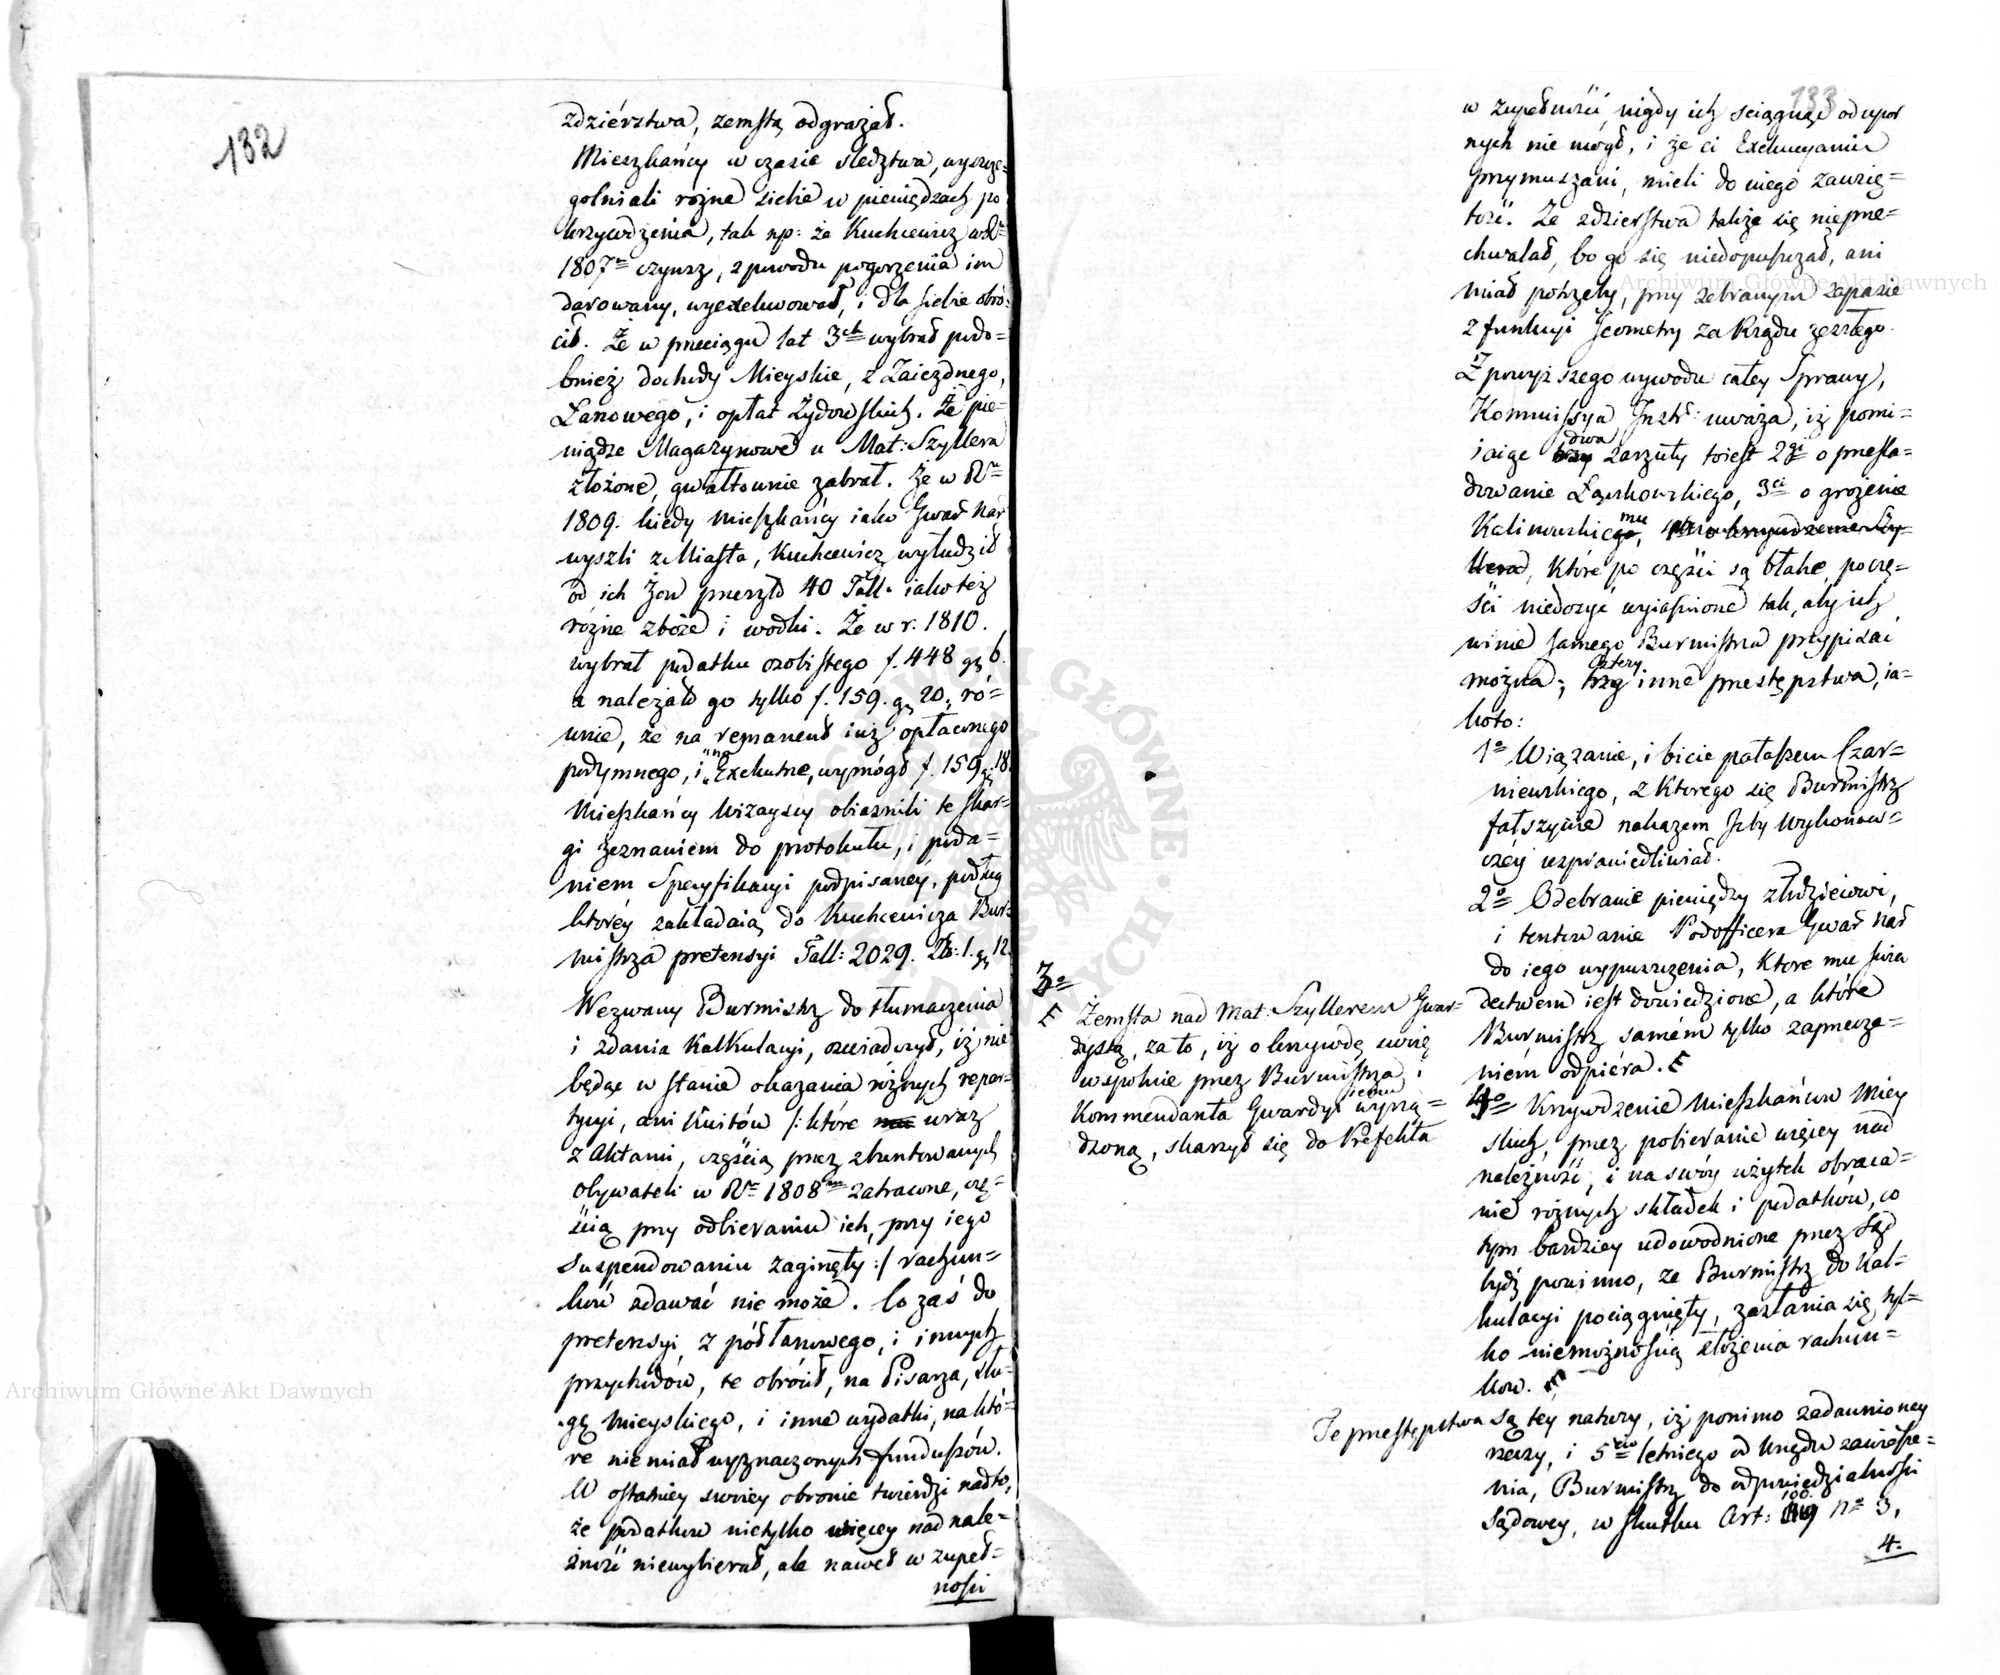 132
zdziérztwa, zemstą odgrażał.
Mieszkańcy w czasie śledztwa, wyszcze=
gólniali rożne siebie w pieniędzach po
krzywdzenia, tak np: że Kuchcewicz w R=
1807m czynsz, z powodu pogorzenia im
darowany, wyexekwował, i dla siebie obró=
cił. Że w przeciągu lat 3ch wybrał podo=
bnież dochody Mieyskie, z Zaiezdnego,
Łanowego, i opłat Żydowskich. Że pie=
niądze Magazynowe u Mat: Szyllera
złożone, gwałtownie zabrał. Że w R=
1809. kiedy mieszkańcy iako Gward Nar
wyszli z Miasta, Kuchcewicz wyłudził
od ich Żon przeszło 40 Tall. iakoteż
rożne zboże i wodki. Że w r. 1810.
wybrał podatku osobistego f. 448 gr 6.
a należało go tylko f. 159. gr 20; ró=
wnie, że na remanent iuż opłaconego
podymnego, i "na" Exekutne, wymógł f. 159 gr 18.
Mieszkańcy Wizayscy obiasnili te skar=
gi zeznaniem do protokułu, i poda=
niem Specyfikacyi podpisaney, podług
ktoréy zakładaią do Kuchcewicza Bur=
mistrza pretensyi Tall: 2029. Zło: 1. gr 12.
Wezwany Burmistrz do tłumaczenia
i zdania Kalkulacyi, oświadczył, iż nie
będąc w stanie okazania różnych repar=
tycyi, ani Kwitów /: które wraz
z Aktami, częścią przez zbuntowanych
Obywateli w R= 1808m zatracone, czę=
ścią przy odbieraniu ich, przy iego
Suspendowaniu zaginęły :/ rachun=
ków zdawać nie może. Co zaś do
pretensyi z półłanowego, i innych
przychodów, te obrócił, na Pisarza, słu=
gę Mieyskiego, i inne wydatki, na któ=
re nie miał wyznaczonych funduszów.
W ostatniey swoiey obronie twierdzi nadto,
że podatków nietylko więcey nad nale=
żność niewybierał, ale nawet w zupeł=
ności
133
w zupełności, nigdy ich sciągnąć od upor
nych nie mógł, i że ci Exekucyami
przymuszani, mieli do niego zawzię=
tość. Że zdzierstwa także się nieprze=
chwalał, bo go się niedopuszczał, ani
miał potrzeby, przy zebranym zapasie
z funkcyi Jeometry za Rządu zeszłego.
Z powyższego wywodu całey Sprawy,
Kommissya Instr: uważa, iż pomi=
iaiąc dwa zarzuty toiest 2gi o prześla=
dowanie Łączkowskiego, 3ci o grożenie
Kalinowskiemu, 4to o krzywdzenie Szy=
llera, które po części są błahe, po czę=
ści niedosyć wyiaśnione tak, aby ich
winie samego Burmistrza przypisać
można; cztery inne przestępstwa, ia=
koto:
1o Wiązanie, i bicie pałaszem Czar=
niewskiego, z ktorego się Burmistrz
fałszywie nakazem Izby Wykonaw=
czéy usprawiedliwiał.
2o Odebranie pieniędzy złodzieiowi,
i tentowanie Podofficera Gwar Nar
do iego wypuszczenia, ktore mu świa
dectwem iest dowiedzione, a które
Burmistrz samém tylko zaprzecze=
niém odpiéra. E
3o
E Zemsta nad Mat: Szyllerem Gwar=
dystą, za to, iż o krzywdę swoię
wspólnie przez Burmistrza i
Kommendanta Gwardyi iemu wyrzą=
dzoną, skarżył się do Prefekta
4o Krzywdzenie Mieszkańców Miey
skich, przez pobieranie więcey nad
należność, i na swóy użytek obraca=
nie różnych składek i podatków, co
tym bardziey udowodnione przez Sąd
bydź powinno, że Burmistrz do Kal=
kulacyi pociągnięty, zasłania się tyl=
ko niemożnością złożenia rachun=
ków.
Te przestępstwa są tey natury, iż pomimo zadawnioney
rzeczy, i 5cio letniego od Urzędu zawiesze=
nia, Burmistrz do odpowiedzialności
Sądowey, w skutku Art: 100 no 3.
4.
Archiwum Główne Akt Dawnych
Archiwum Główne Akt Dawnych